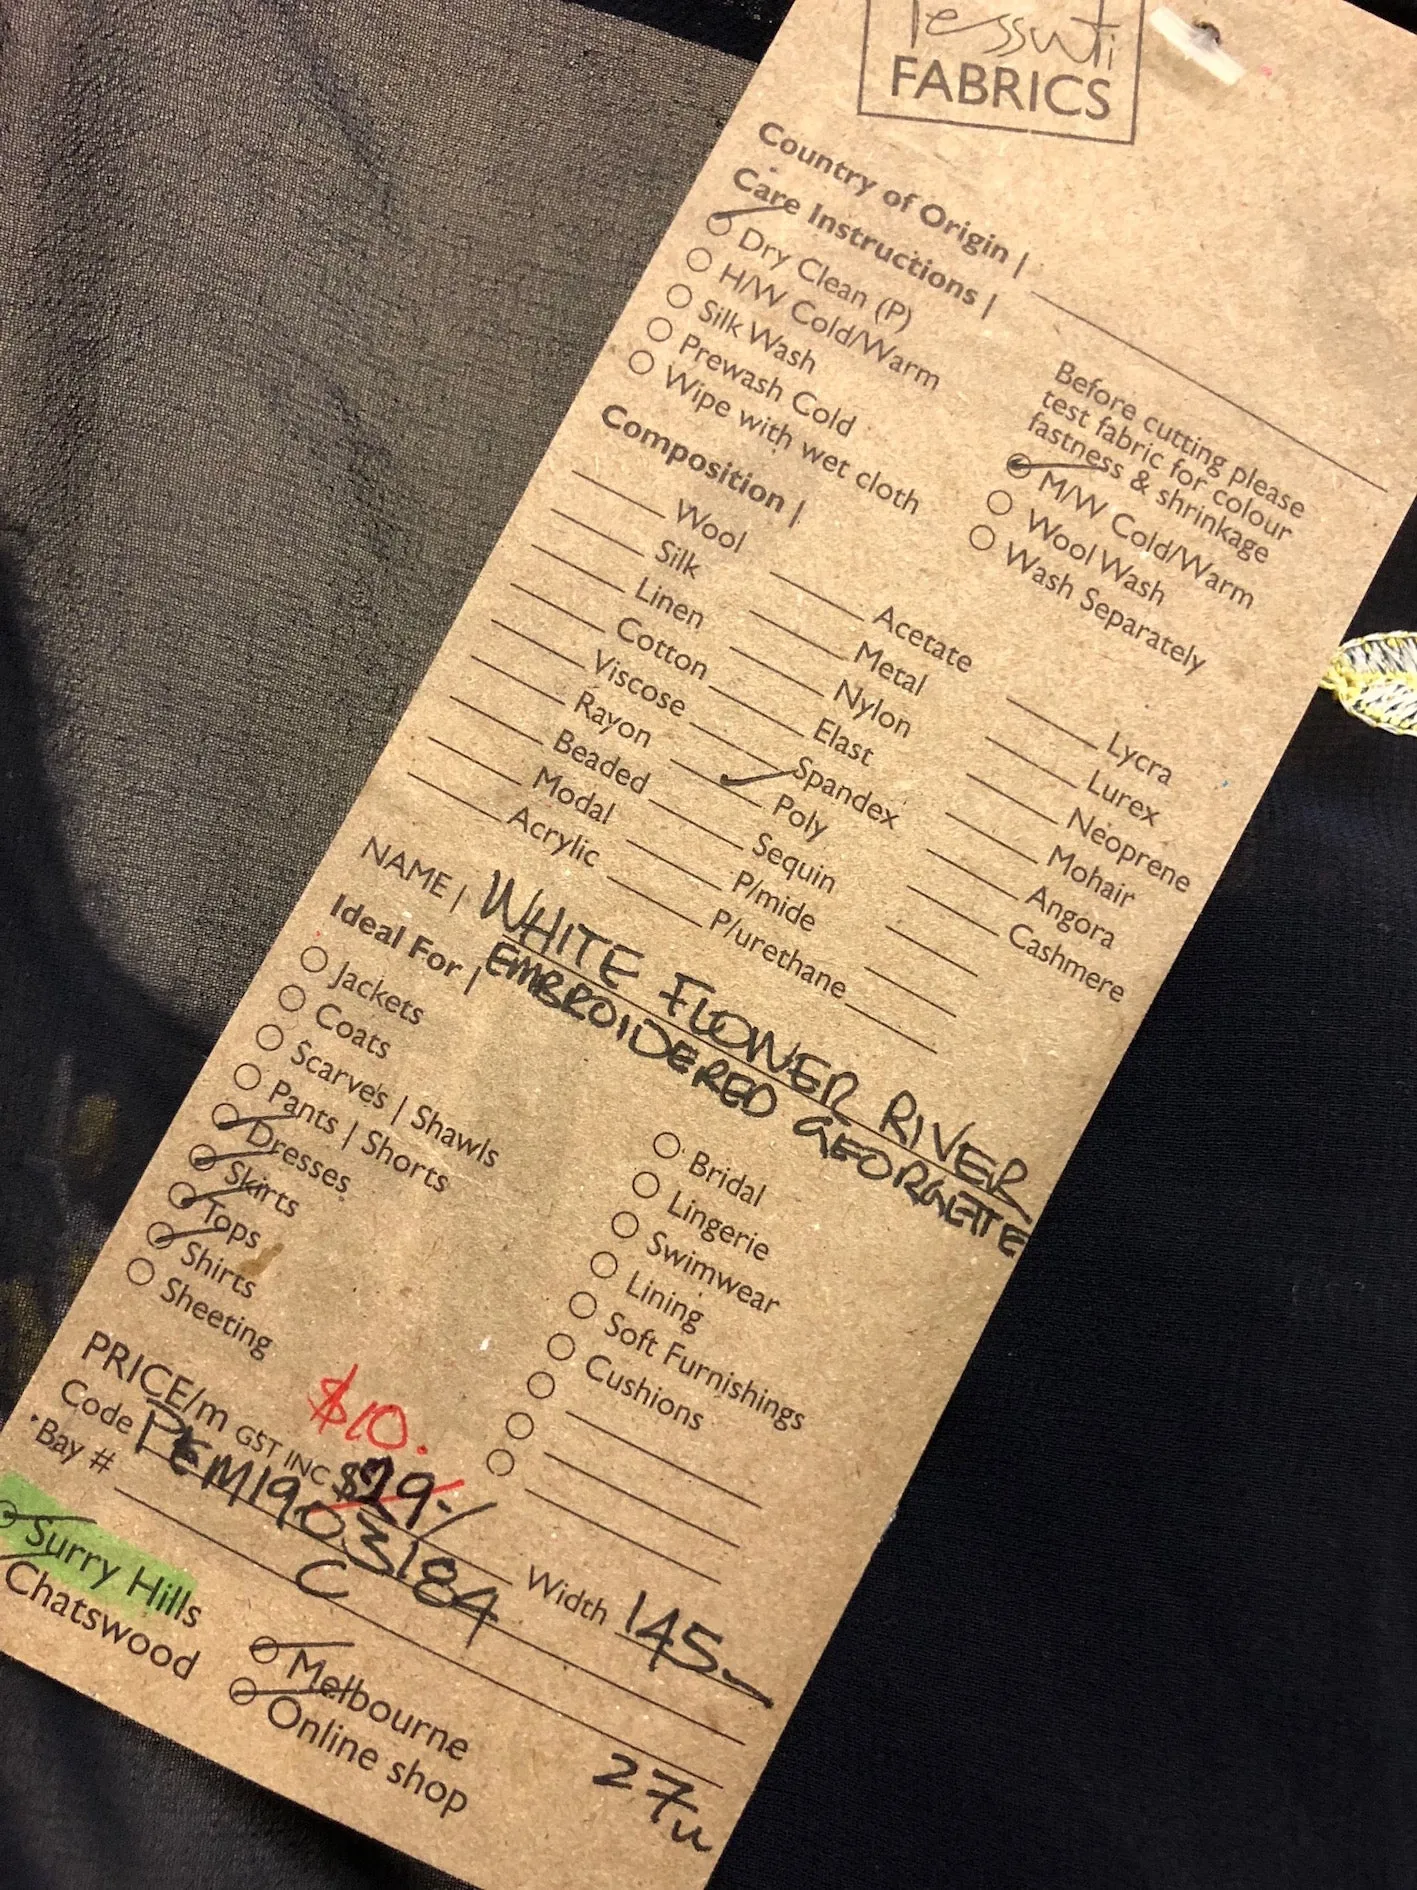 Tessuti
FABRICS
Country of Origin |
Care Instructions |
Dry Clean (P)
H/W Cold/Warm
Silk Wash
Prewash Cold
Wipe with wet cloth
Before cutting please
test fabric for colour
fastness & shrinkage
M/W Cold/Warm
Wool Wash
Wash Separately
Composition |
Wool
Silk
Linen
Cotton
Viscose
Rayon
Beaded
Modal
Acrylic
Acetate
Metal
Nylon
Elast
Spandex
Poly
Sequin
P/mide
P/urethane
Lycra
Lurex
Neoprene
Mohair
Angora
Cashmere
NAME | WHITE FLOWER RIVER
EMBROIDERED GEORGETTE
Ideal For |
Jackets
Coats
Scarves | Shawls
Pants | Shorts
Dresses
Skirts
Tops
Shirts
Sheeting
Bridal
Lingerie
Swimwear
Lining
Soft Furnishings
Cushions
$10.
PRICE/m GST INC $29-/ Width 145-
Code PEM1903184
Bay # C
Surry Hills
Chatswood
Melbourne
Online shop